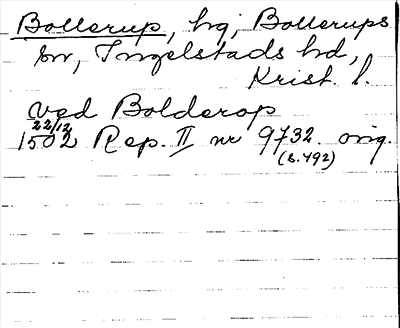 Bollerup, hg; Bollerups
sn, Ingelstads hd,
Krist. l.
ved Bolderop
22/12
1502 Rep. II nr 9732. orig.
(s. 492)